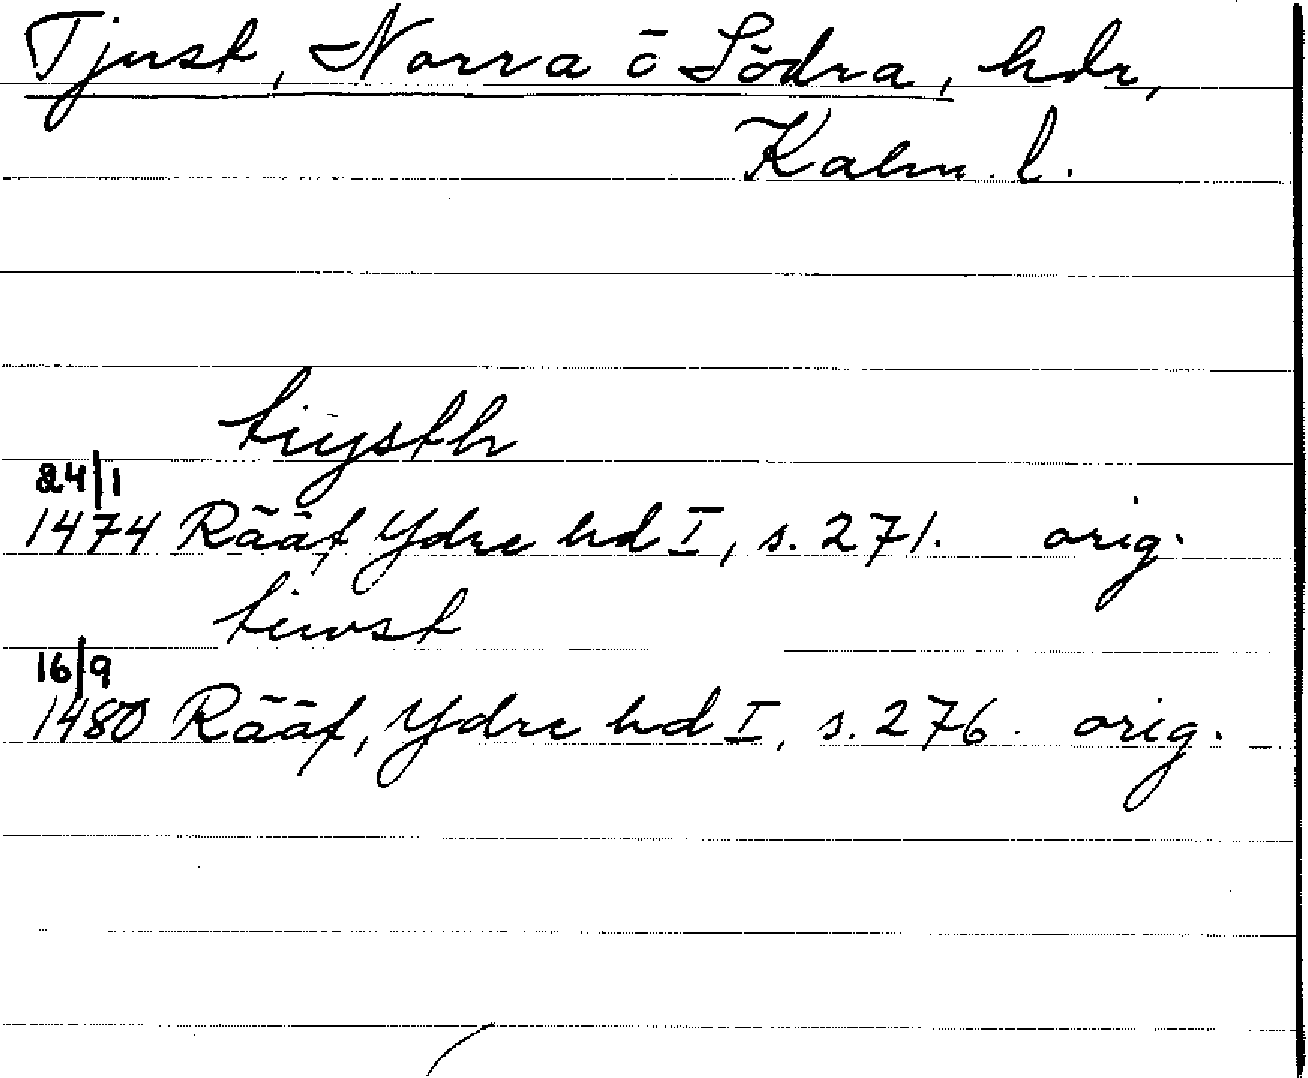 Tjust, Norra o Södra, hdr,
Kalm. l.
tiysth
24/1
1474 Rääf Ydre hd I, s. 271. orig.
tiwst
16/9
1480 Rääf, Ydre hd I, s. 276. orig.